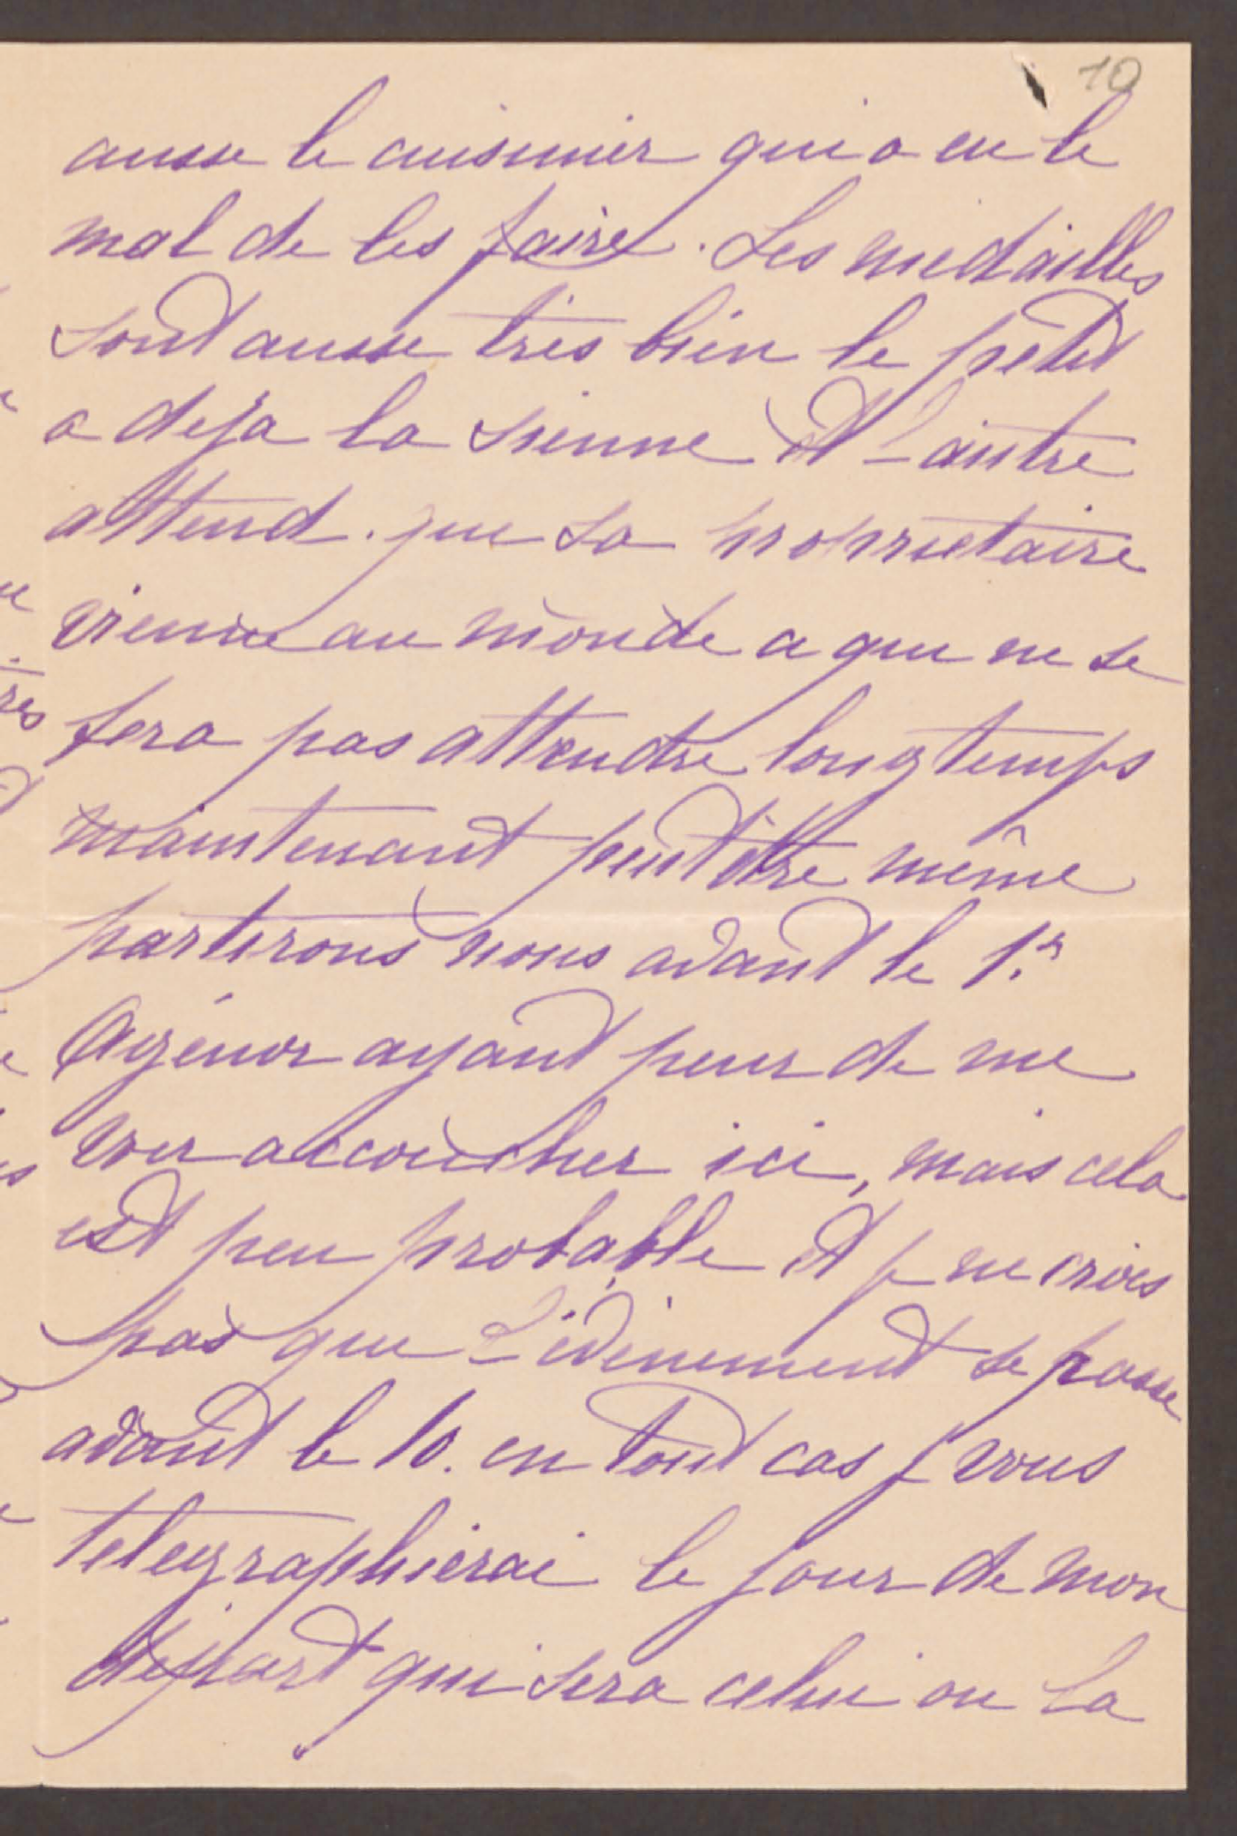 10
aussi le cuisinier qui a eu le
mal de les faire. Les medailles
sont aussi très bien le petit
a deja la sienne et l'autre
attend que sa proprietaire
vienne au monde a que ne se
fera pas attendre longtemps
maintenant peut être même
partirons nous avant le 1er
Agénor ayant peur de me
voir accoucher ici, mais cela
est peu probable et je ne crois
pas que l'évènement se passe
avant le 10. en tout cas je vous
telegraphierai le jour de mon
départ qui sera celui ou la